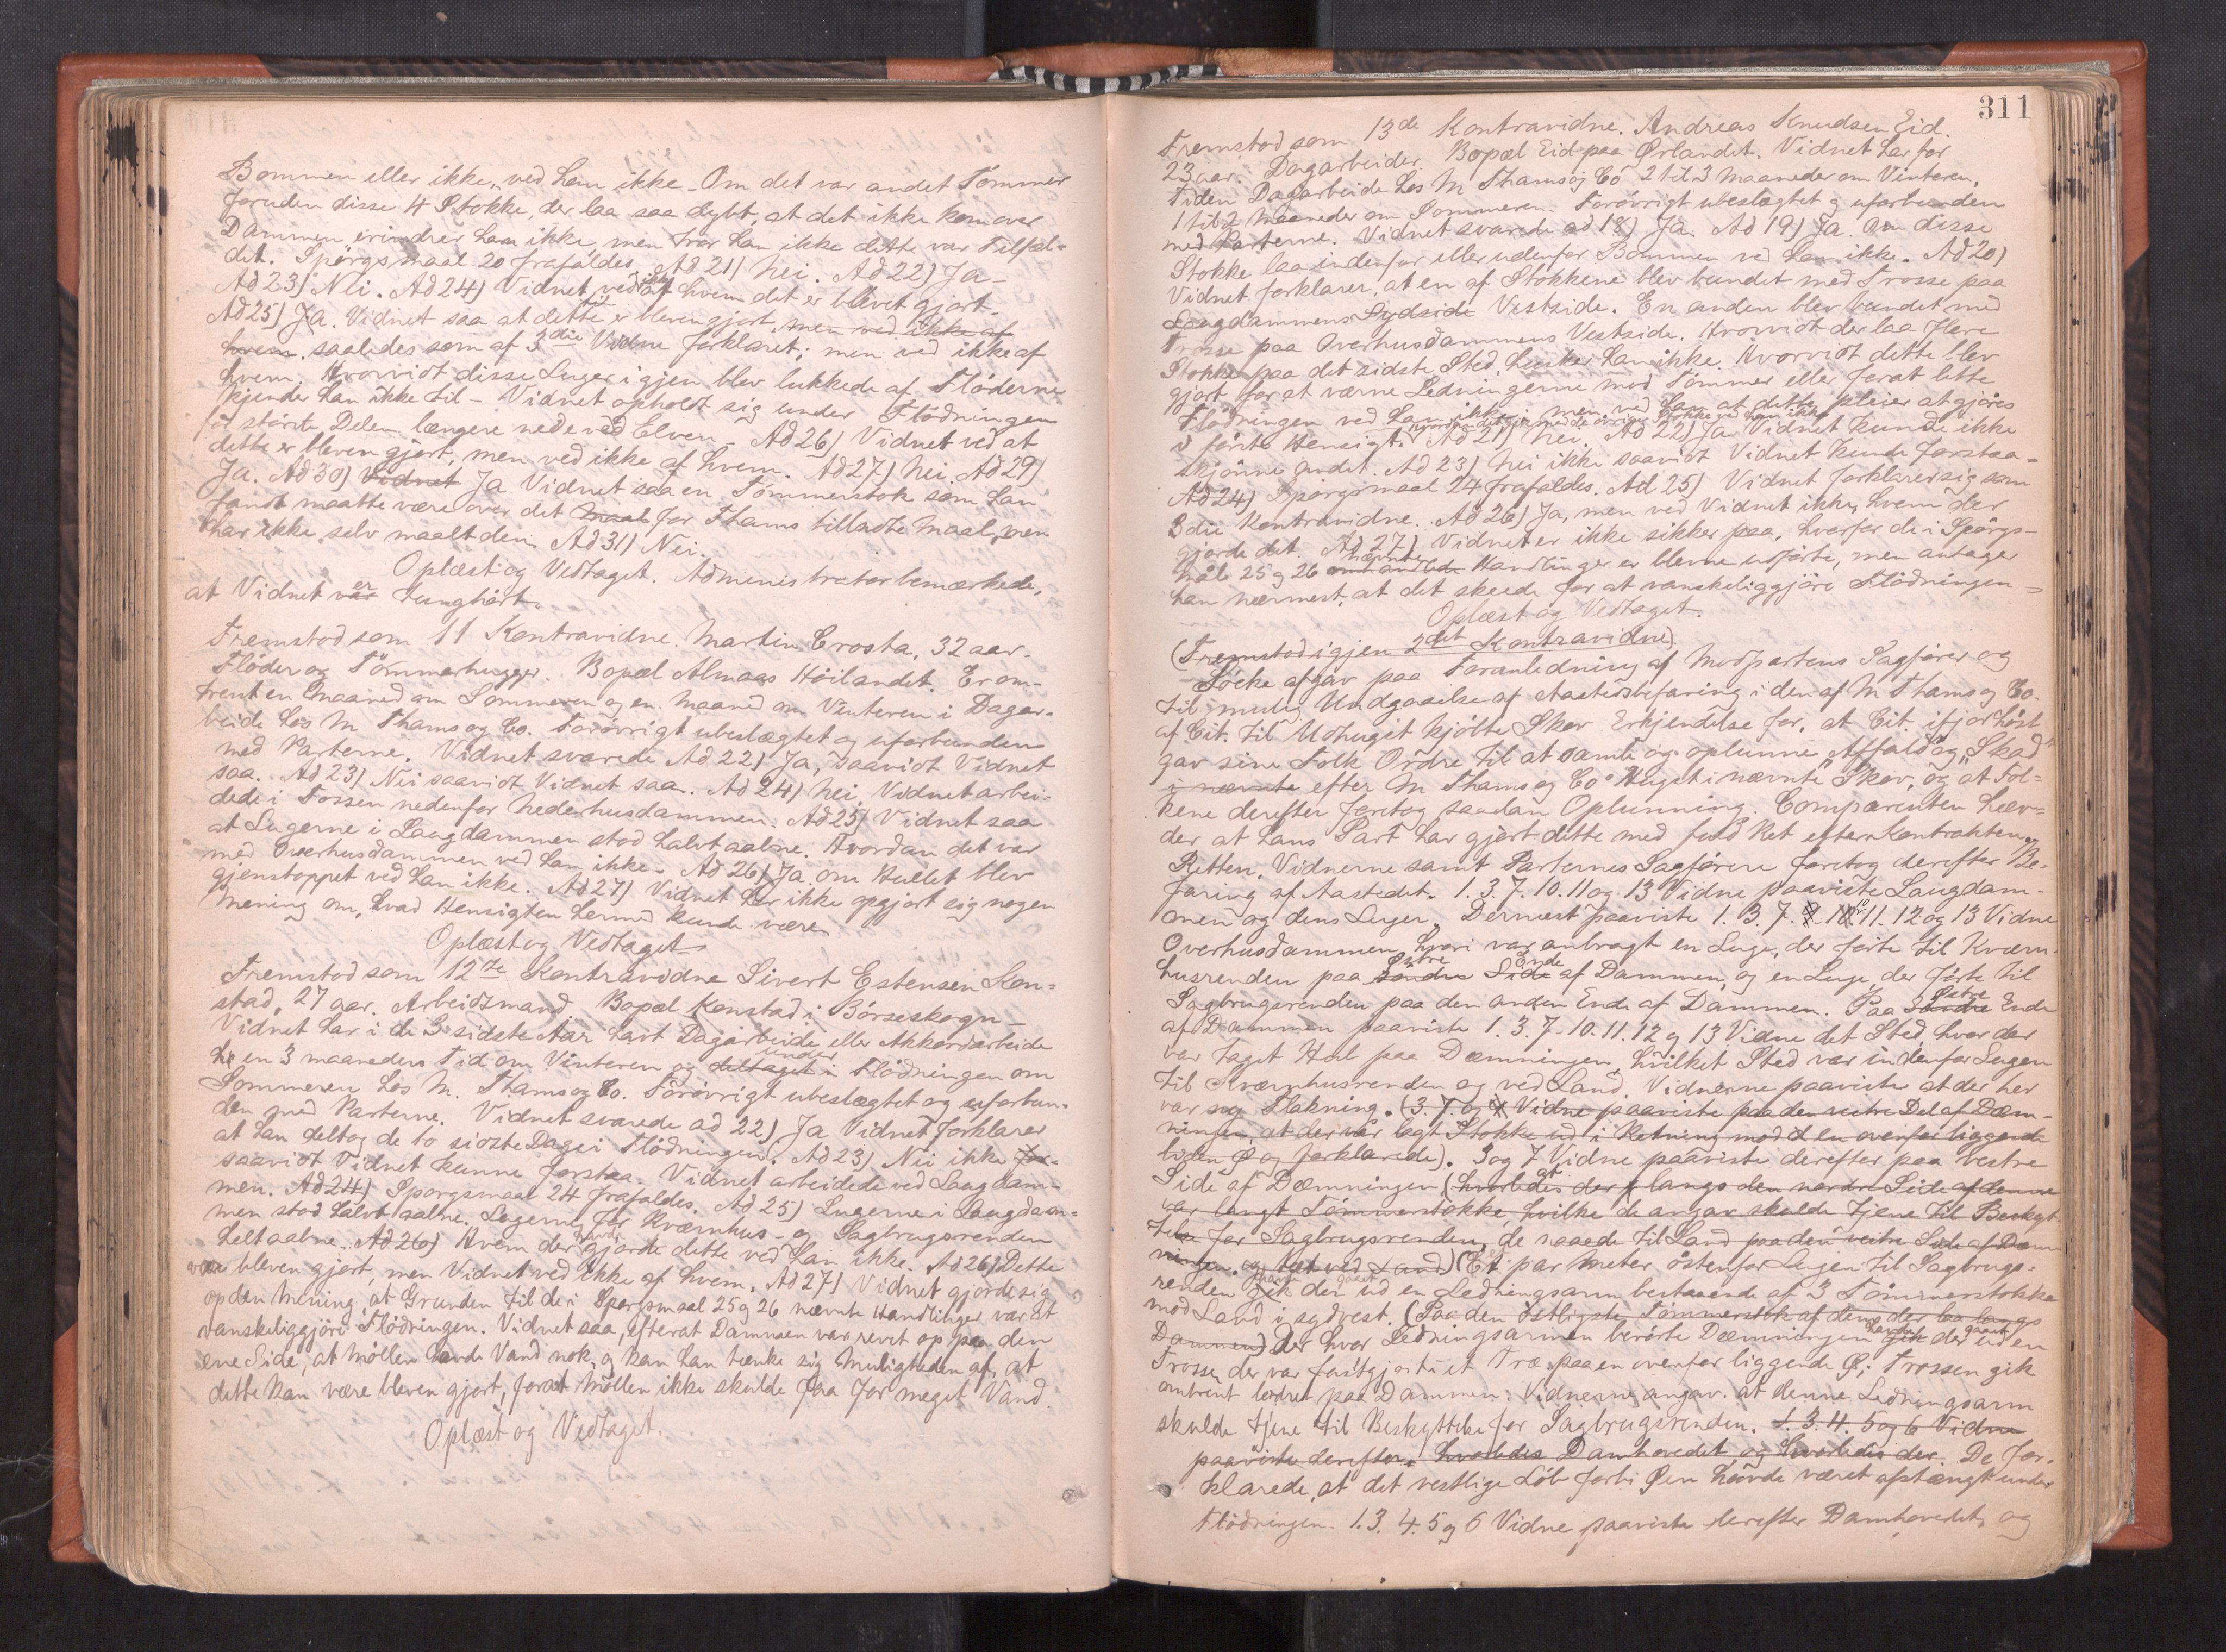 Bommen eller ikke, ved han ikke. Om det var andet Tømmer
foruden disse 4 Stokke, der laa saa dybt, at det ikke kom over
Dammen erindrer han ikke, men tror han ikke dette var Tilfæl-
det. Spörgsmaal 20 frafaldes. Ad 21) Nei. Ad 22) Ja -
Ad 23) Nei. Ad 24) Vidnet ved ikke af hvem det er blevet gjort.
Ad 25) Ja. Vidnet saa at dette er bleven gjort, men ved ikke af
hvem. saaledes som af 3die Vidne forklaret; men ved ikke af
hvem. Hvorvidt disse Luger igjen blev lukkede af Flöderne
kjender han ikke til - Vidnet opholdt sig under Flödningen
for störste Delen længere nede ved Elven - Ad 26) Vidnet ved at
dette er bleven gjort, men ved ikke af hvem. Ad 27) Nei. Ad 29)
Ja. Ad 30) Vidnet Ja Vidnet saa en Tömmerstok som han
fandt maatte være over det maal for Thams tilladte Maal, men
har ikke selv maalt den. Ad 31) Nei.
Oplæst og Vedtaget. Administrator bemærkede,
at Vidnet var er tunghört.
Fremstod som 11 Kontravidne. Martin Crosta, 32 aar.
Flöder og Tömmerhugger. Bopæl Almaas Höilandet. Er om-
trent en Maaned om Sommeren og en Maaned om Vinteren i Dagar-
beide hos M. Thams og Co. Forövrigt ubeslægtet og uforbunden
med Parterne. Vidnet svarede Ad 22) Ja, saavidt Vidnet
saa. Ad 23) Nei saavidt Vidnet saa. Ad 24) Nei, Vidnet arbei-
dede i Fossen nedenfor Nederhusdammen. Ad 25) Vidnet saa
at Lugerne i Laugdammen stod halvt aabne. Hvordan det var
med Overhusdammen ved han ikke - Ad 26) Ja, om Hullet blev
gjenstoppet ved han ikke. Ad 27) Vidnet har ikke opgjort sig nogen
Mening om, hvad Hensigten hermed kunde være.
Oplæst og Vedtaget
Fremstod som 12te Kontravidne Sivert Estensen Kon-
stad, 27 aar. Arbeidsmand. Bopæl Konstad i Börseskogn -
Vidnet har i de 3 sidste Aar havt Dagarbeide eller Akkordarbeide
en 3 maaneders Tid om Vinteren og deltaget i under Flödningen om
Sommeren hos M. Thams og Co. Forövrigt ubeslægtet og uforbun-
den med Parterne. Vidnet svarede ad 22) Ja Vidnet forklarer
at han deltog de to sidste Dage i Flödningen. Ad 23) Nei ikke for-
saavidt Vidnet kunne forstaa. Vidnet arbeidede ved Laugdam-
men. Ad 24) Spörgsmaal 24 frafaldes. Ad 25) Lugerne i Laugdam-
men stod halvt aabne. Lugerne for Kværnhus- og Sagbrugsrenden
helt aabne. Ad 26) Hvem der havde gjorde dette ved han ikke. Ad 26) Dette
var bleven gjort, men Vidnet ved ikke af hvem. Ad 27) Vidnet gjorde sig
op den Mening, at Grunden til de i Spörgsmaal 25 og 26 nævnte Handlinger var at
vanskeliggjöre Flödningen. Vidnet saa, efterat Dammen var revet op paa den
ene Side, at Möllen havde Vand nok, og kan han tænke sig Muligheden af, at
dette kan være bleven gjort, forat Möllen ikke skulde faa for meget Vand.
Oplæst og Vedtaget.
311
Fremstod som 13de Kontravidne. Andreas Knudsen Eid.
23 aar. Dagarbeider. Bopæl Eid paa Ørlandet. Vidnet har for
Tiden Dagarbeide hos M Thams og Co 2 til 3 Maaneder om Vinteren,
1 til 2 Maaneder om Sommeren. Forövrigt ubeslægtet og uforbunden
med Parterne. Vidnet svarede ad 18) Ja. Ad 19) Ja. Om disse
Stokke laa indenfor eller udenfor Bommen ved han ikke. Ad 20)
Vidnet forklarer, at en af Stokkene blev bundet med Trosse paa
Laugdammens Sydside Vestside. En anden blev bundet med
Trosse paa Overhusdammens Vestside. Hvorvidt der laa flere
Stokke paa det sidste Sted, husker han ikke. Hvorvidt dette blev
gjort for at værne Ledningerne mod Tömmer eller forat lette
Flödningen ved han ikke, men ved han at dette pleier at gjöres
i förste Hensigt. hvordan det gik med de övrige Stokke ved han ikke Ad 21) Nei. Ad 22) Ja Vidnet kunde ikke
skjönne andet. Ad 23) Nei ikke saavidt Vidnet kunde forstaa -
Ad 24) Spörgsmaal 24 frafaldes. Ad 25) Vidnet forklarer sig som
3die Kontravidne. Ad 26) Ja, men ved Vidnet ikke, hvem der
gjorde det. Ad 27) Vidnet er ikke sikker paa, hvorfor de i Spörgs-
maal 25 og 26 nævnte Handlinger er blevne udförte, men antager
han nærmest, at det skeede for at vanskeliggjöre Flödningen -
Oplæst og Vedtaget.
(Fremstod igjen 2det Kontravidne)
Löcke afgav paa Foranledning af Modpartens Sagförer og
til mulig Undgaaelse af Aastedsbefaring i den af M Thams og Co.
af Cit. til Uthugst kjöbte Skov Erkjendelse for, at Cit. ifjor Höst
gav sine Folk Ordre til at samle og oplunne Affald og "Skad"
i nævnte efter M Thams og Co's Hugst i nævnte Skov, og at Fol-
kene derefter foretog saadan Oplunning. Comparenten hæv-
der at hans Part har gjort dette med fuld Ret efter Kontrakten.
Retten, Vidnerne samt Parternes Sagförere foretog derefter Be-
faring af Aastedet. 1. 3. 7. 10. 11 og 13 Vidne paaviste Laugdam-
men og dens Luger. Dernæst paaviste 1. 3. 7. 10. 11. 12 og 13 Vidne
Overhusdammen, hvori var anbragt en Luge, der förte til Kværn-
husrenden paa Söndre Östre Side Ende af Dammen, og en Luge, der förte til
Sagbrugsrenden paa den anden Ende af Dammen. Paa Söndre Østre Ende
af Dammen paaviste 1. 3. 7. 10. 11. 12 og 13 Vidne det Sted, hvor der
var taget Hul paa Dæmningen, hvilket Sted var indenfor Lugen
til Kværnhusrenden og ved Land. Vidnerne paaviste at der her
var ny Flakning. (3. 7. og Vidne paaviste paa den vestre Del af Dæm-
ningen, at der var lagt Stokke ud i Retning mod den ovenfor liggende
liden Ø og forklarede). 3 og 7 Vidne paaviste derefter paa Vestre
Side af Dæmningen (hvorledes der langs den nordre Side af denne
var langt Tömmerstokke, hvilke de angav skulde tjene til Beskyt-
telse for Sagbrugsrenden, de naaede til Land paa den vestre Side af Dæm-
ningen, og tæt ved Land) (Et par Meter östenfor Lugen til Sagbrugs-
renden gik havde gaaet der ud en Ledningsarm bestaaende af 3 Tömmerstokke
mod Land i sydvest. (Paa den östligste Tömmerstok af dem der laa langs
Dammen) der hvor Ledningsarmen berörte Dæmningen gik havde der gaaet ud en
Trosse der var fastgjort i et Træ paa en ovenfor liggende Ø; Trossen gik
omtrent lodret paa Dammen. Vidnerne angav, at denne Ledningsarm
skulde tjene til Beskyttelse for Sagbrugsrenden. 1. 3. 4. 5 og 6 Vidne
paaviste derefter, hvorledes Damhovedet og hvorledes der. De for-
klarede, at det vestlige Löb forbi Øen havde været afstængt under
Flödningen. 1. 3. 4. 5 og 6 Vidne paaviste derefter Damhovedet, og